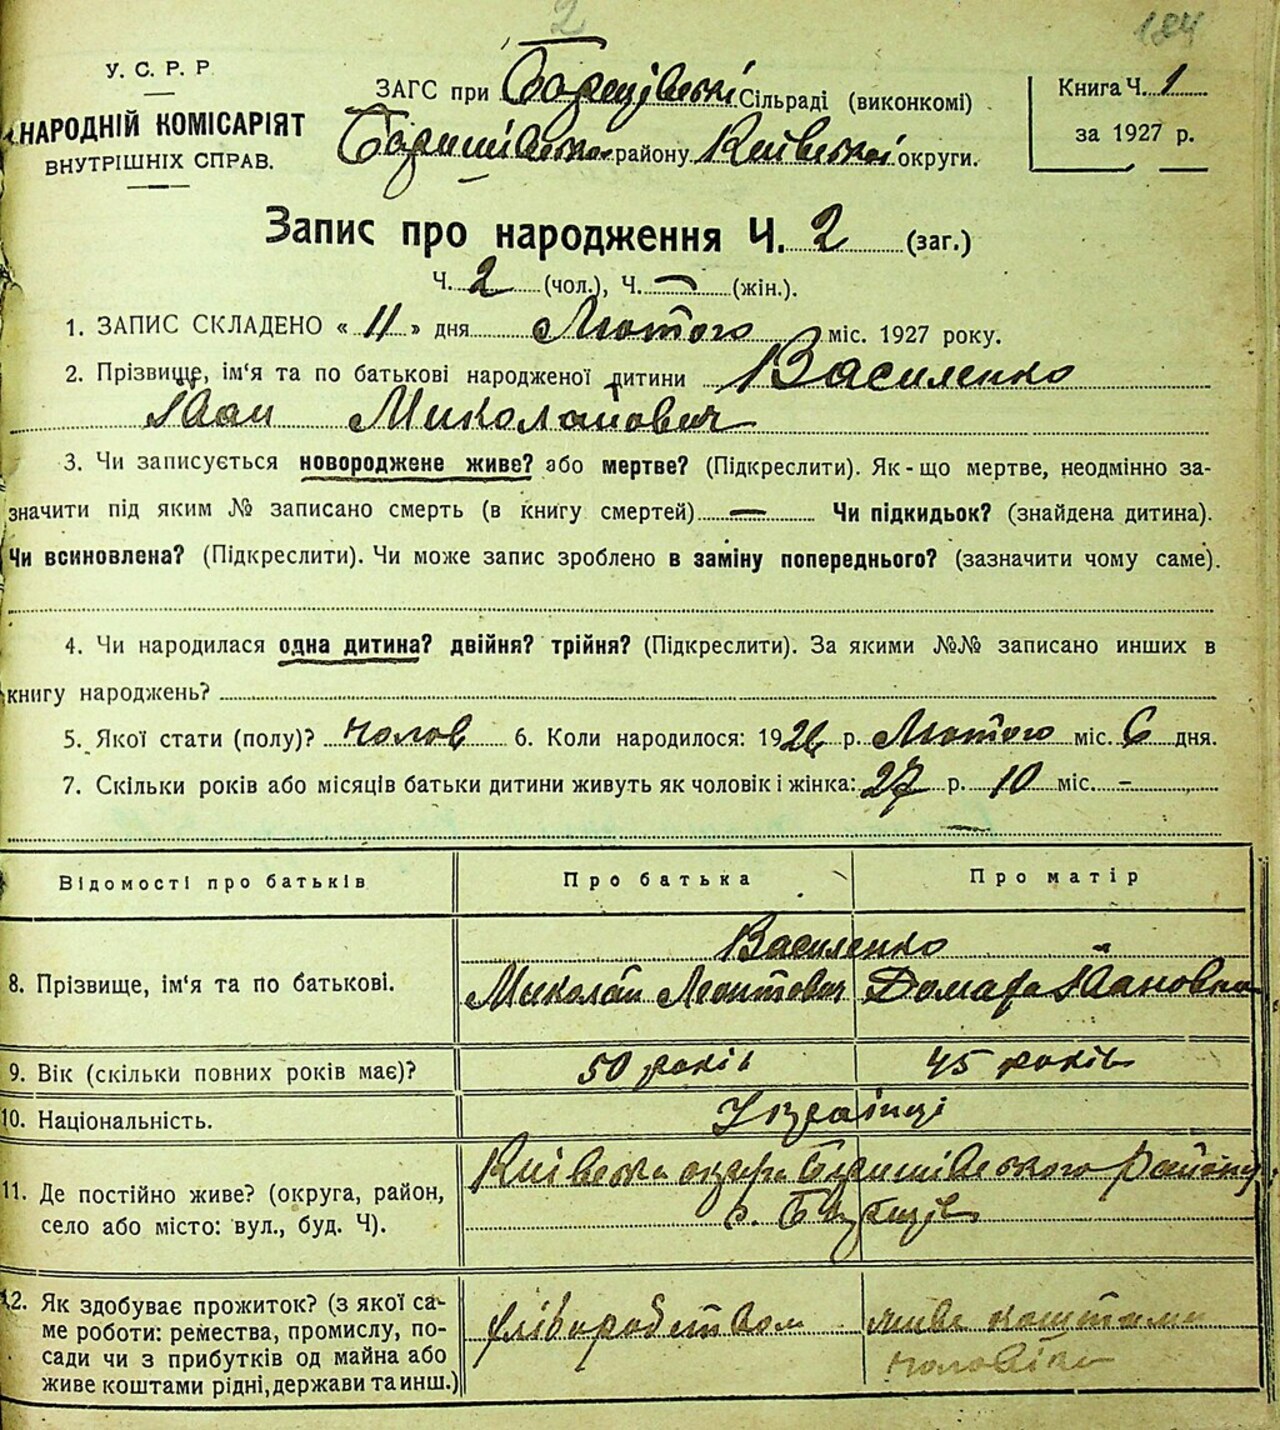 2
184
У. С. Р. Р
НАРОДНІЙ КОМІСАРІЯТ
ВНУТРІШНІХ СПРАВ.
ЗАГС при Сільраді (виконкомі)
Баришівськ району Київської округи.
Книга Ч. 1
за 1927 р.
Запис про народження Ч. 2 (заг.)
Ч. 2 (чол.), Ч. — (жін.).
1. ЗАПИС СКЛАДЕНО « 11 » дня Лютого міс. 1927 року.
2. Прізвище, ім'я та по батькові народженої дитини Василенко
Іван Миколайович
3. Чи записується новороджене живе? або мертве? (Підкреслити). Як-що мертве, неодмінно за-
значити під яким № записано смерть (в книгу смертей) — Чи підкидьок? (знайдена дитина).
Чи всиновлена? (Підкреслити). Чи може запис зроблено в заміну попереднього? (зазначити чому саме).
4. Чи народилася одна дитина? двійня? трійня? (Підкреслити). За якими №№ записано инших в
книгу народжень?
5. Якої стати (полу)? чолов 6. Коли народилося: 192 р. Лютого міс. 6 дня.
7. Скільки років або місяців батьки дитини живуть як чоловік і жінка: 27 р. 10 міс. –
Відомості про батьків Про батька Про матір
Василенко
8. Прізвище, ім'я та по батькові. Миколай Леонтович Домаха Івановна
9. Вік (скільки повних років має)? 50 років 45 років
10. Національність. Українці
Київська округа Баришівського району
11. Де постійно живе? (округа, район,
село або місто: вул., буд. Ч). с.
12. Як здобуває прожиток? (з якої са-
ме роботи: ремества, промислу, по-
сади чи з прибутків од майна або
живе коштами рідні, держави та инш.)
хліборобством
живе коштами
чоловіка